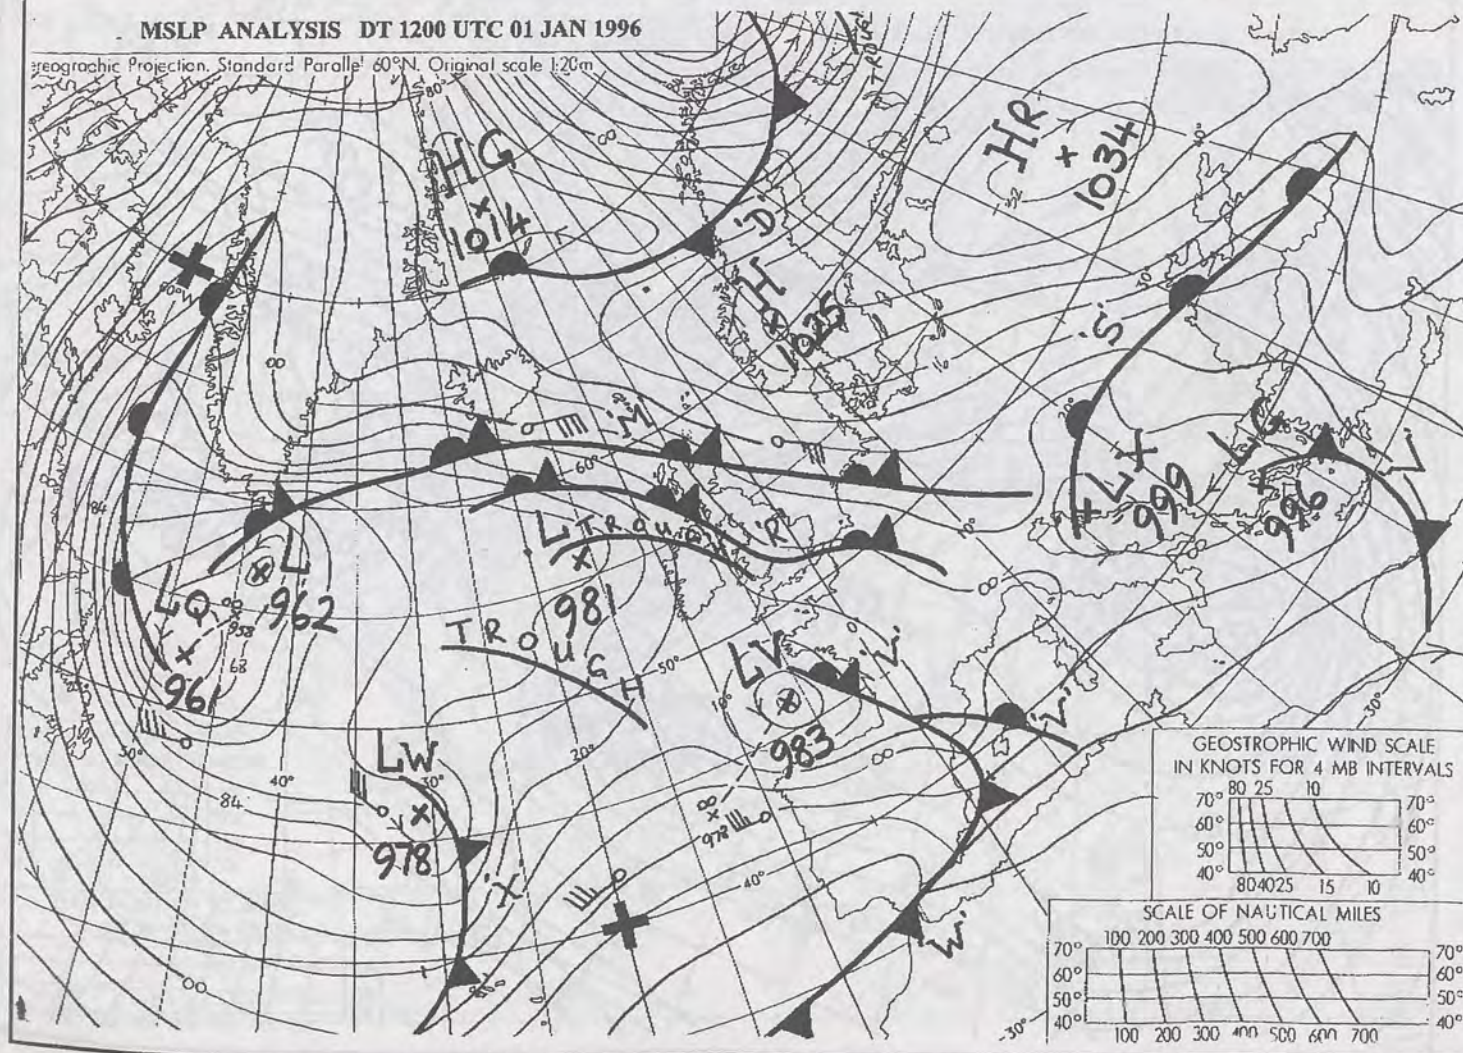 MSLP ANALYSIS DT 1200 UTC 01 JAN 1996
ereographic Projection. Standard Parallel 60°N. Original scale 1:20m
80°
TROUGH
HG
1014
HR
1034
32
40°
'D'
H
1025
16
30°
'S'
00
60°
'M'
20°
84
LX
999
LG
996
L
962
LQ
961
958
68
L
981
TROUGH
'R'
10°
TROUGH
50°
LV
983
978
10°
LW
978
30°
'X'
50°
40°
84
20°
40°
00
30°
30°
GEOSTROPHIC WIND SCALE
IN KNOTS FOR 4 MB INTERVALS
80 25 10
70° 70°
60° 60°
50° 50°
40° 40°
80 40 25 15 10
SCALE OF NAUTICAL MILES
100 200 300 400 500 600 700
70° 70°
60° 60°
50° 50°
40° 40°
100 200 300 400 500 600 700